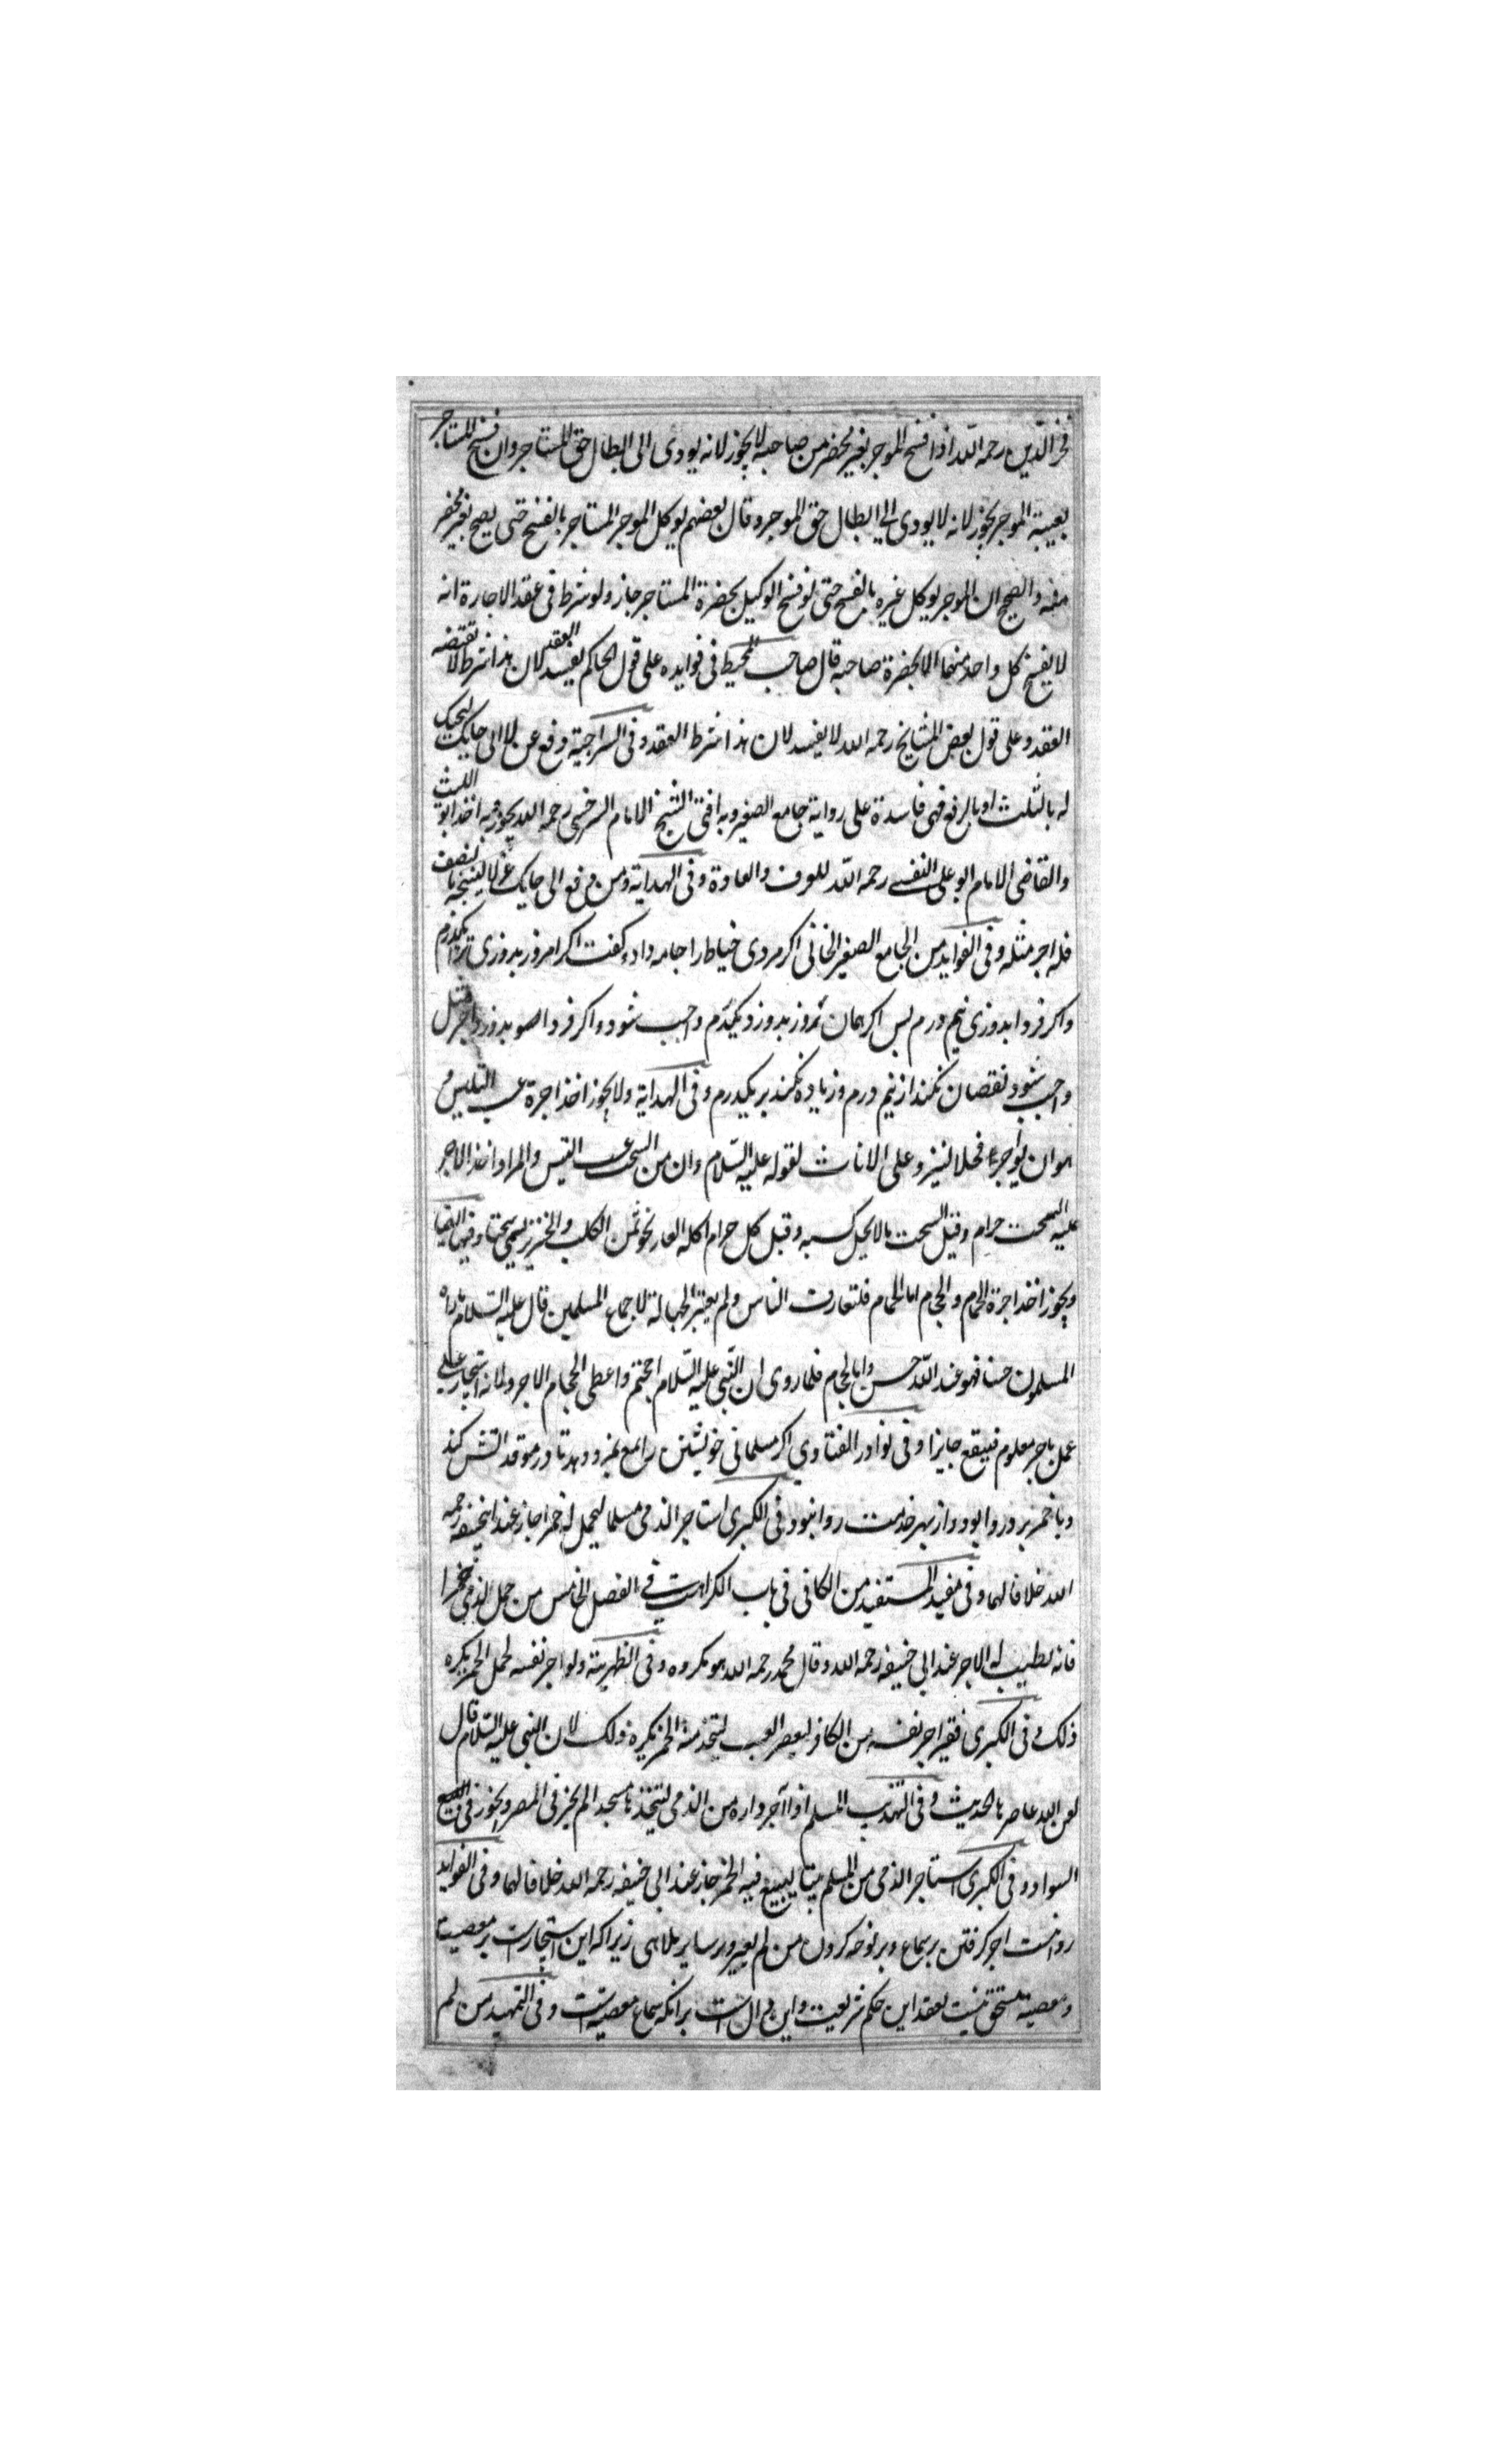 فخر الدین رحمه الله اذا فسخ الموجر بغیر محضر من صاحبه لایجوز لانه یودی الی ابطال حق المستاجر وان فسخ المستاجر
بغیبة الموجر یجوز لانه لایودی الی ابطال حق الموجر وقال بعضهم یوکل الموجر المستاجر بالفسخ حتی یصح بغیر محضر
منه والصحیح ان الموجر یوکل غیره بالفسخ حتی لو فسخ الوکیل بحضرة المستاجر جاز ولو شرط فی عقد الاجارة انه
لا یفسخ کل واحد منهما الا بحضرة صاحبه قال صاحب المحیط فی فوایده علی قول الحاکم یفسد العقد لان هذا شرط لا تقتضه
العقد وعلی قول بعض المشایخ رحمه الله لا یفسد لان هذا شرط العقد وفی السراجیة دفع غزلا الی حایک لیحیک
له بالثلث او بالربع فهی فاسدة علی روایة جامع الصغیر وبه افتی الشیخ الامام السرخسی رحمه الله یجوز وبه اخذ ابو اللیث
والقاضی الامام ابو علی النسفی رحمه الله للعرف والعادة وفی الهدایة ومن دفع الی حایک غزلا لینسجه بالنصف
فله اجر مثله وفی الفواید من الجامع الصغیر الخانی اکر مردی خیاط را جامه داد وکفت اکر امروز بدوزی ترا یکدرم
واکر فردا بدوزی نیم درم پس اکر همان روز بدوزد یکدرم واجب شود واکر فردا بدوزد اجر مثل
واجب شود نقصان نکند از نیم درم وزیاده نکند بر یکدرم وفی الهدایة ولایجوز اخذ اجرة عسب التیس و
هو ان یواجر فحلا لینزو علی الاناث لقوله علیه السلام وان من السحت عسب التیس والمراد اخذ الاجر
علیه السحت حرام وقیل السحت مالایحل کسبه وقیل کل حرام اکله العار نحو ثمن الکلب والخنزیر یسمی سحتا وفیها ایضا
ویجوز اخذ اجرة الحمام والحجام اما الحمام فلتعارف الناس ولم یعتبر الجهالة لاجماع المسلمین قال علیه السلام ماراه
المسلمون حسنا فهو عند الله حسن واما الحجام فلما روی ان النبی علیه السلام احتجم واعطی الحجام الاجر ولانه استیجار علی
عمل باجر معلوم فیقع جایزا وفی نوادر الفتاوی اکر مسلمانی خویشتن را بمغ بمزد دهد تا در موقد آتش کند
ویا خمر برد روا بود واز بهر خدمت روا نبود وفی الکبری استاجر الذمی مسلما لیحمل له خمرا جاز عند ابیحنیفه رحمه
الله خلافا لهما وفی مفید المستفید من الکافی فی باب الکراهیة فی الفصل الخامس من حمل لذمی خمرا
فانه یطیب له الاجر عند ابی حنیفه رحمه الله وقال محمد رحمه الله هو مکروه وفی الظهیریة ولو اجر نفسه لحمل الخمر یکره
ذلک وفی الکبری فقیر اجر نفسه من الکافر لیعصر العنب لیتخذ منه الخمر یکره ذلک لان النبی علیه السلام قال
لعن الله عاصرها الحدیث وفی التهذیب المسلم اذا آجر داره من الذمی لیتخذها مسجدا لم یجز فی المصر ویجوز فی
السواد وفی الکبری استاجر الذمی من المسلم بیتا لیبیع فیه الخمر جاز عند ابی حنیفه رحمه الله خلافا لهما وفی الفواید
روا نیست اجر کرفتن بر سماع وبر نوحه کردن من لم یعیر وبر سایر ملاهی زیراکه این استیجارست بر معصیت
ومعصیت مستحق نیست بعقد این حکم شریعت واین دال است برانکه سماع معصیت است وفی التمهید من لم